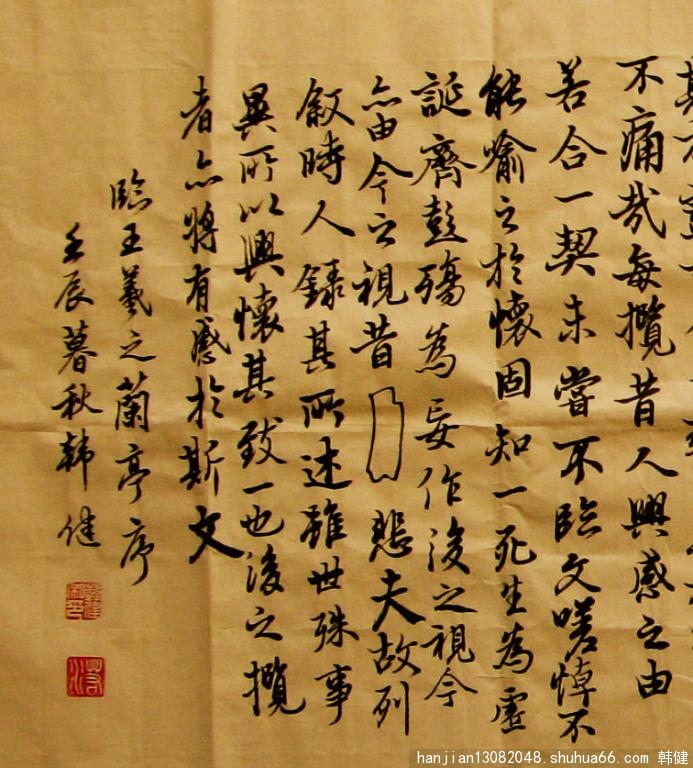 不痛哉每攬昔人興感之由
若合一契未嘗不臨文嗟悼不
能喻之於懷固知一死生為虛
誕齊彭殤為妄作後之視今
亦由今之視昔悲夫故列
叙時人錄其所述雖世殊事
異所以興懷其致一也後之攬
者亦將有感於斯文
臨王羲之蘭亭序
壬辰暮秋韩健
hanjian13082048.shuhua66.com 韩健